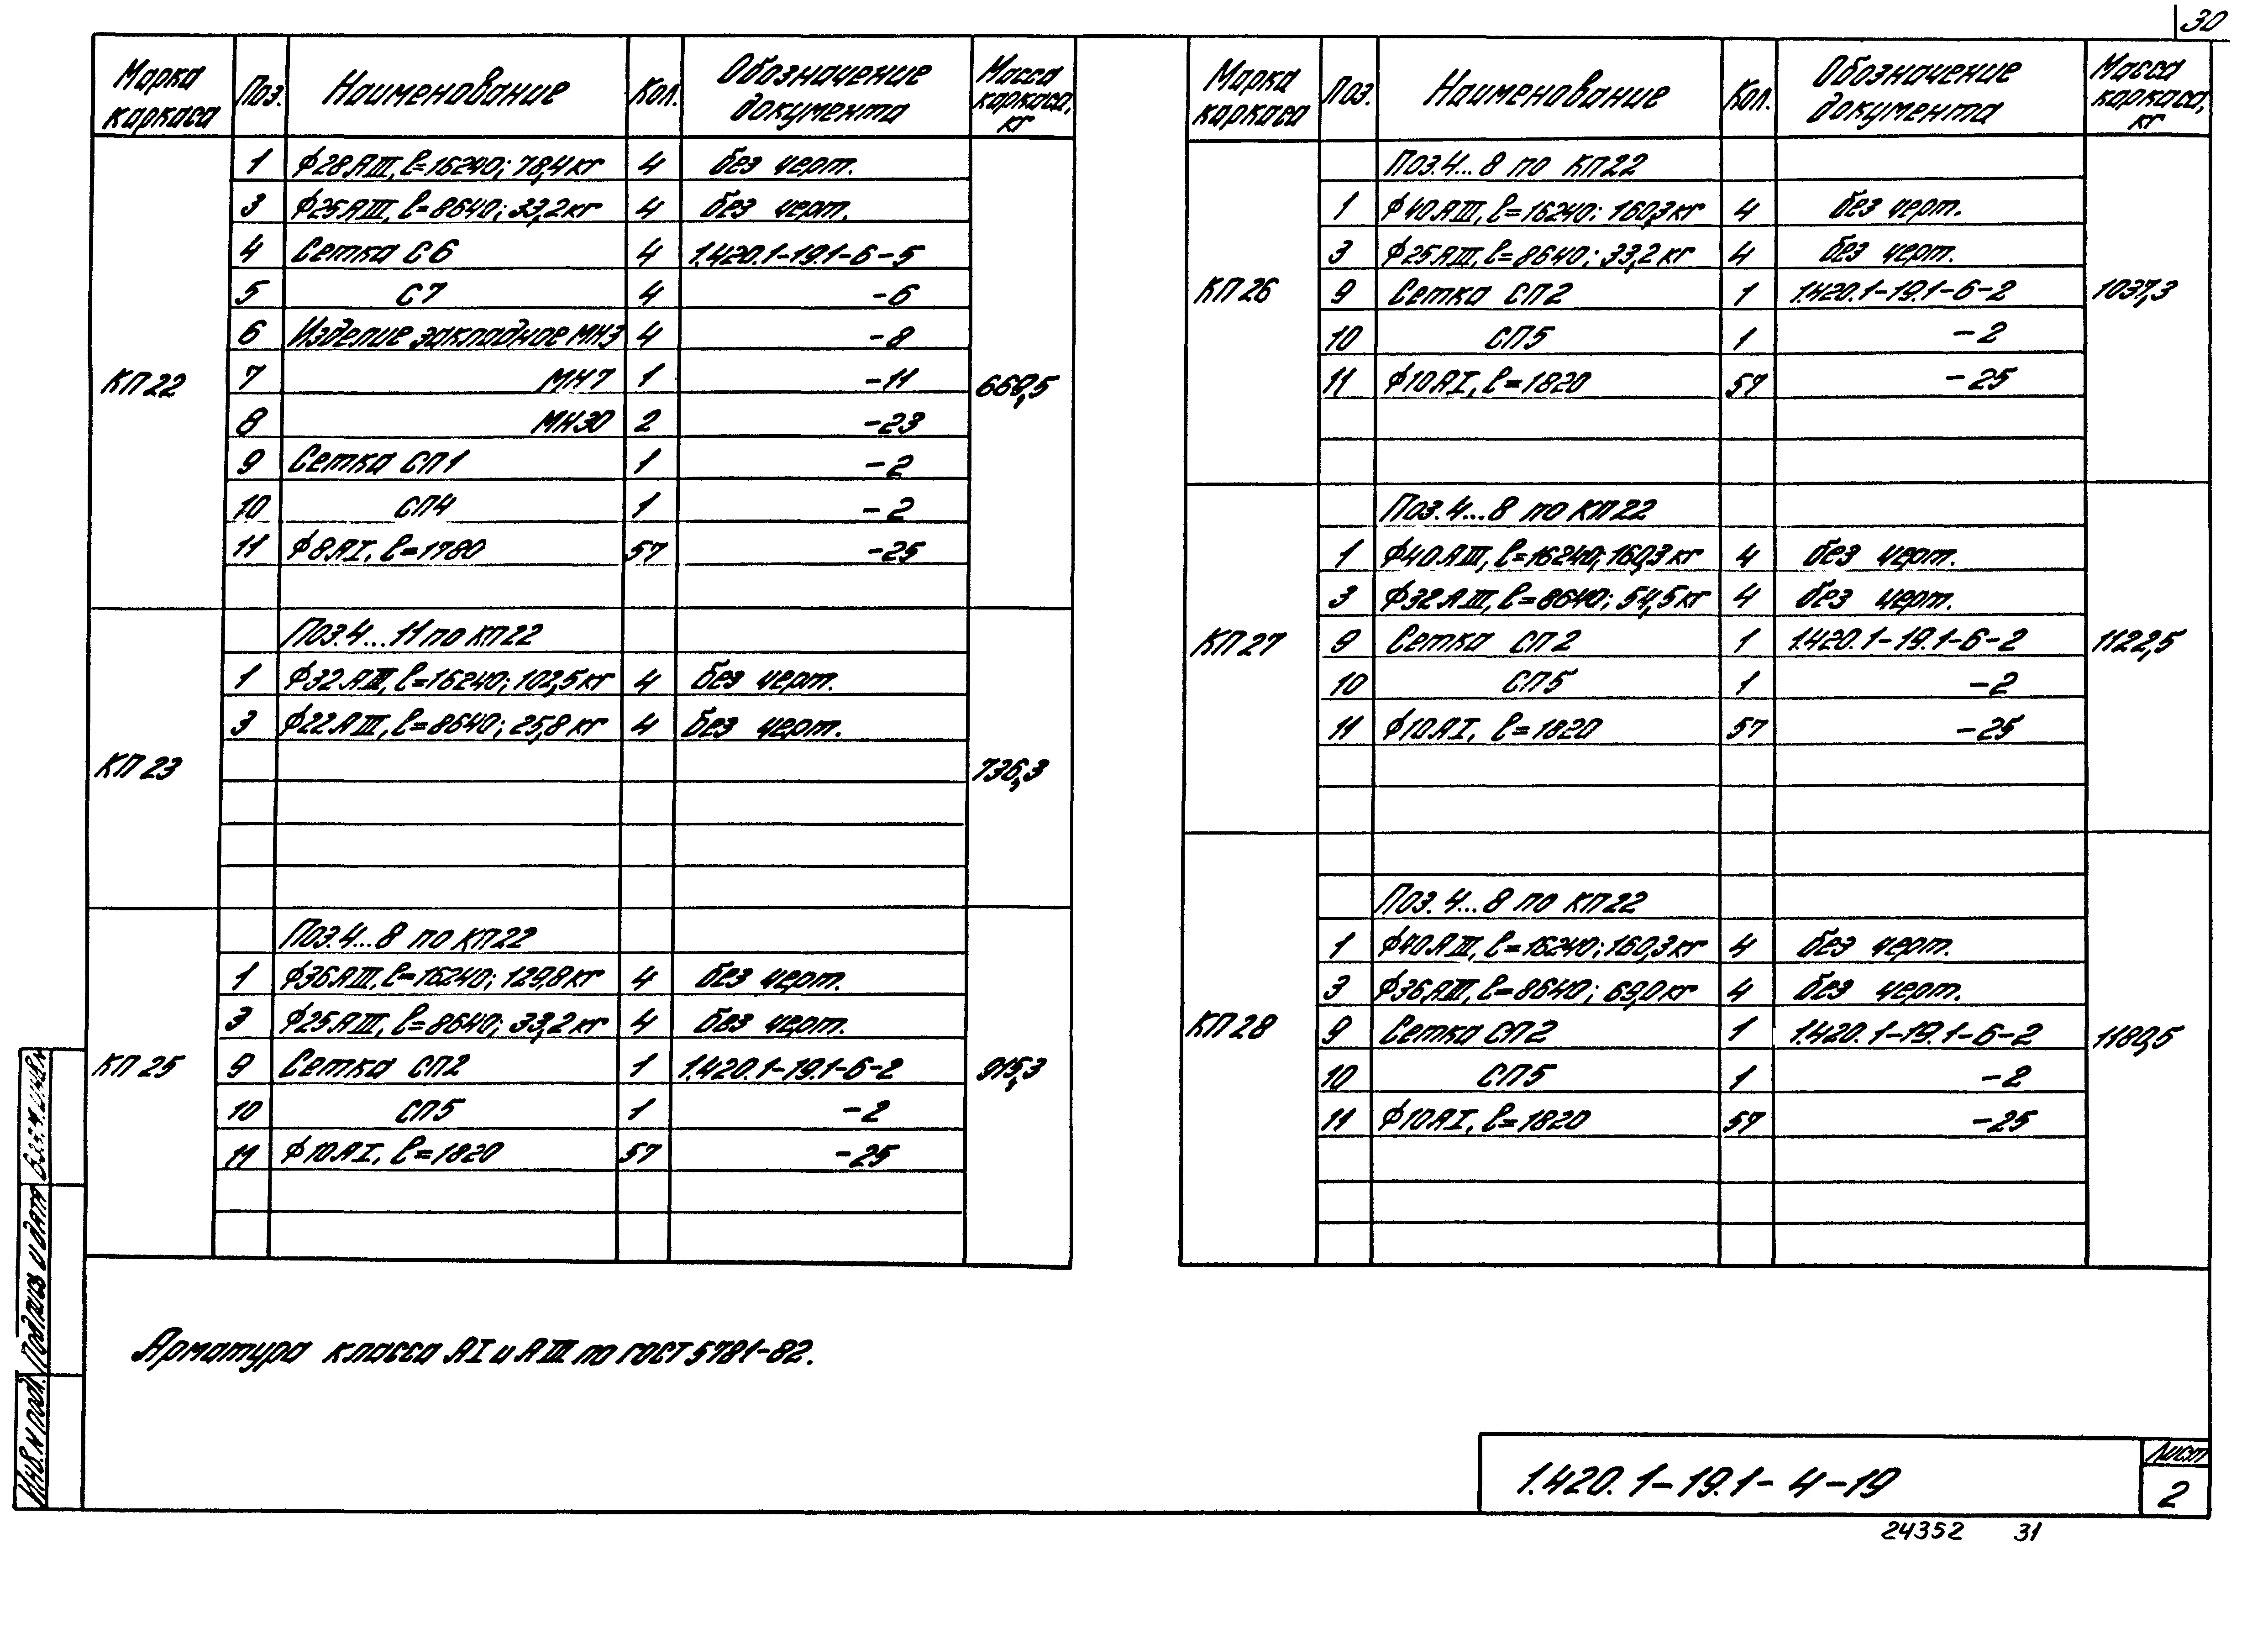 30
Марка каркаса Поз. Наименование Кол. Обозначение документа Масса каркаса, кг
КП22 669,5
1 ф28АIII, ℓ=16240; 78,4кг 4 без черт.
3 ф25АIII, ℓ=8640; 33,2кг 4 без черт.
4 Сетка С6 4 1.420.1-19.1-6-5
5 С7 4 -6
6 Изделие закладное МН3 4 -8
7 МН7 1 -11
8 МН30 2 -23
9 Сетка СП1 1 -2
10 СП4 1 -2
11 ф8АI, ℓ=1780 57 -25
КП23 736,3
Поз.4...11 по КП22
1 ф32АIII, ℓ=16240; 102,5кг 4 без черт.
3 ф22АIII, ℓ=8640; 25,8кг 4 без черт.
КП25 915,3
Поз.4...8 по КП22
1 ф36АIII, ℓ=16240; 129,8кг 4 без черт.
3 ф25АIII, ℓ=8640; 33,2кг 4 без черт.
9 Сетка СП2 1 1.420.1-19.1-6-2
10 СП5 1 -2
11 ф10АI, ℓ=1820 57 -25
Марка каркаса Поз. Наименование Кол. Обозначение документа Масса каркаса, кг
КП26 1037,3
Поз.4...8 по КП22
1 ф40АIII, ℓ=16240; 160,3кг 4 без черт.
3 ф25АIII, ℓ=8640; 33,2кг 4 без черт.
9 Сетка СП2 1 1.420.1-19.1-6-2
10 СП5 1 -2
11 ф10АI, ℓ=1820 57 -25
КП27 1122,5
Поз.4...8 по КП22
1 ф40АIII, ℓ=16240; 160,3кг 4 без черт.
3 ф32АIII, ℓ=8640; 54,5кг 4 без черт.
9 Сетка СП2 1 1.420.1-19.1-6-2
10 СП5 1 -2
11 ф10АI, ℓ=1820 57 -25
КП28 1180,5
Поз.4...8 по КП22
1 ф40АIII, ℓ=16240; 160,3кг 4 без черт.
3 ф36АIII, ℓ=8640; 69,0кг 4 без черт.
9 Сетка СП2 1 1.420.1-19.1-6-2
10 СП5 1 -2
11 ф10АI, ℓ=1820 57 -25
Арматура класса АI и АIII по ГОСТ 5781-82.
Инв.N подл. Подпись и дата Взам.инв.N
1.420.1-19.1-4-19
Лист
2
24352 31